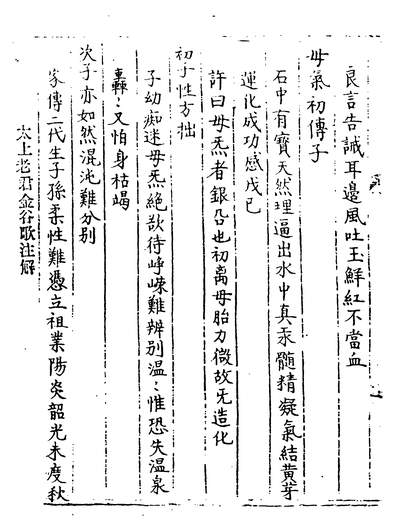 良言告誡耳邊風吐玉鮮紅不當血
母氣初傳子
石中有寳天然理逼出水中真汞髓精凝氣結黃芽
運化成功感戊己
許曰母炁者銀鉛也初离母胎力微故旡造化
初子性方拙
子幼痴迷母炁絶欲待崢嶸難辨别温〻惟恐失温泉
轟〻又怕身枯竭
次子亦如然混沌難分别
家傳二代生子孫柔性難憑立祖業陽炎韶光未度秋
太上老君金谷歌注解